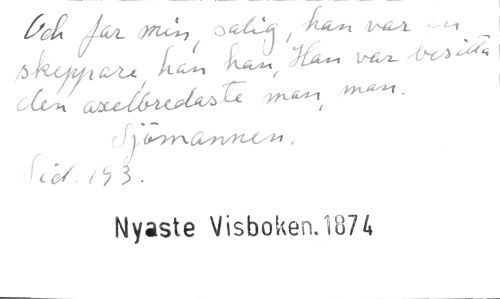 Och far min, salig, han var en
skeppare, han han, Han var besitta
den axelbredaste man, man.
Sjömannen.
Sid. 193.
Nyaste Visboken. 1874